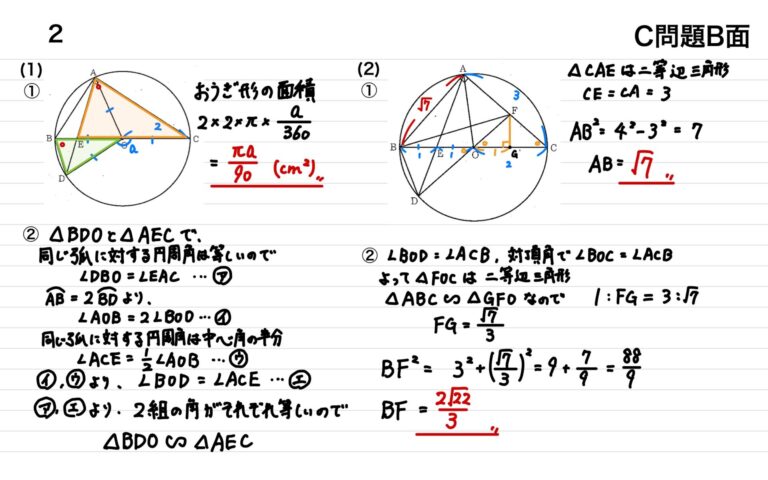 2
C問題B面
(1)
①
A
B
E
O
C
D
2
a
おうぎ形の面積
2×2×π×a/360
=πa/90 (cm²)〃
② △BDOと△AECで、
同じ弧に対する円周角は等しいので
∠DBO=∠EAC …㋐
AB=2BDより、
∠AOB=2∠BOD…㋑
同じ弧に対する円周角は中心角の半分
∠ACE=1/2∠AOB …㋒
㋑,㋒より、∠BOD=∠ACE …㋓
㋐,㋓より、2組の角がそれぞれ等しいので
△BDO∽△AEC
(2)
①
A
√7
3
F
B
1
E
1
O
1
G
C
2
D
△CAEは二等辺三角形
CE=CA=3
AB²=4²-3²=7
AB=√7〃
② ∠BOD=∠ACB,対頂角で∠BOC=∠ACB
よって△FOCは二等辺三角形
△ABC∽△GFOなので 1:FG=3:√7
FG=√7/3
BF²= 3²+(√7/3)²=9+7/9=88/9
BF=2√22/3〃